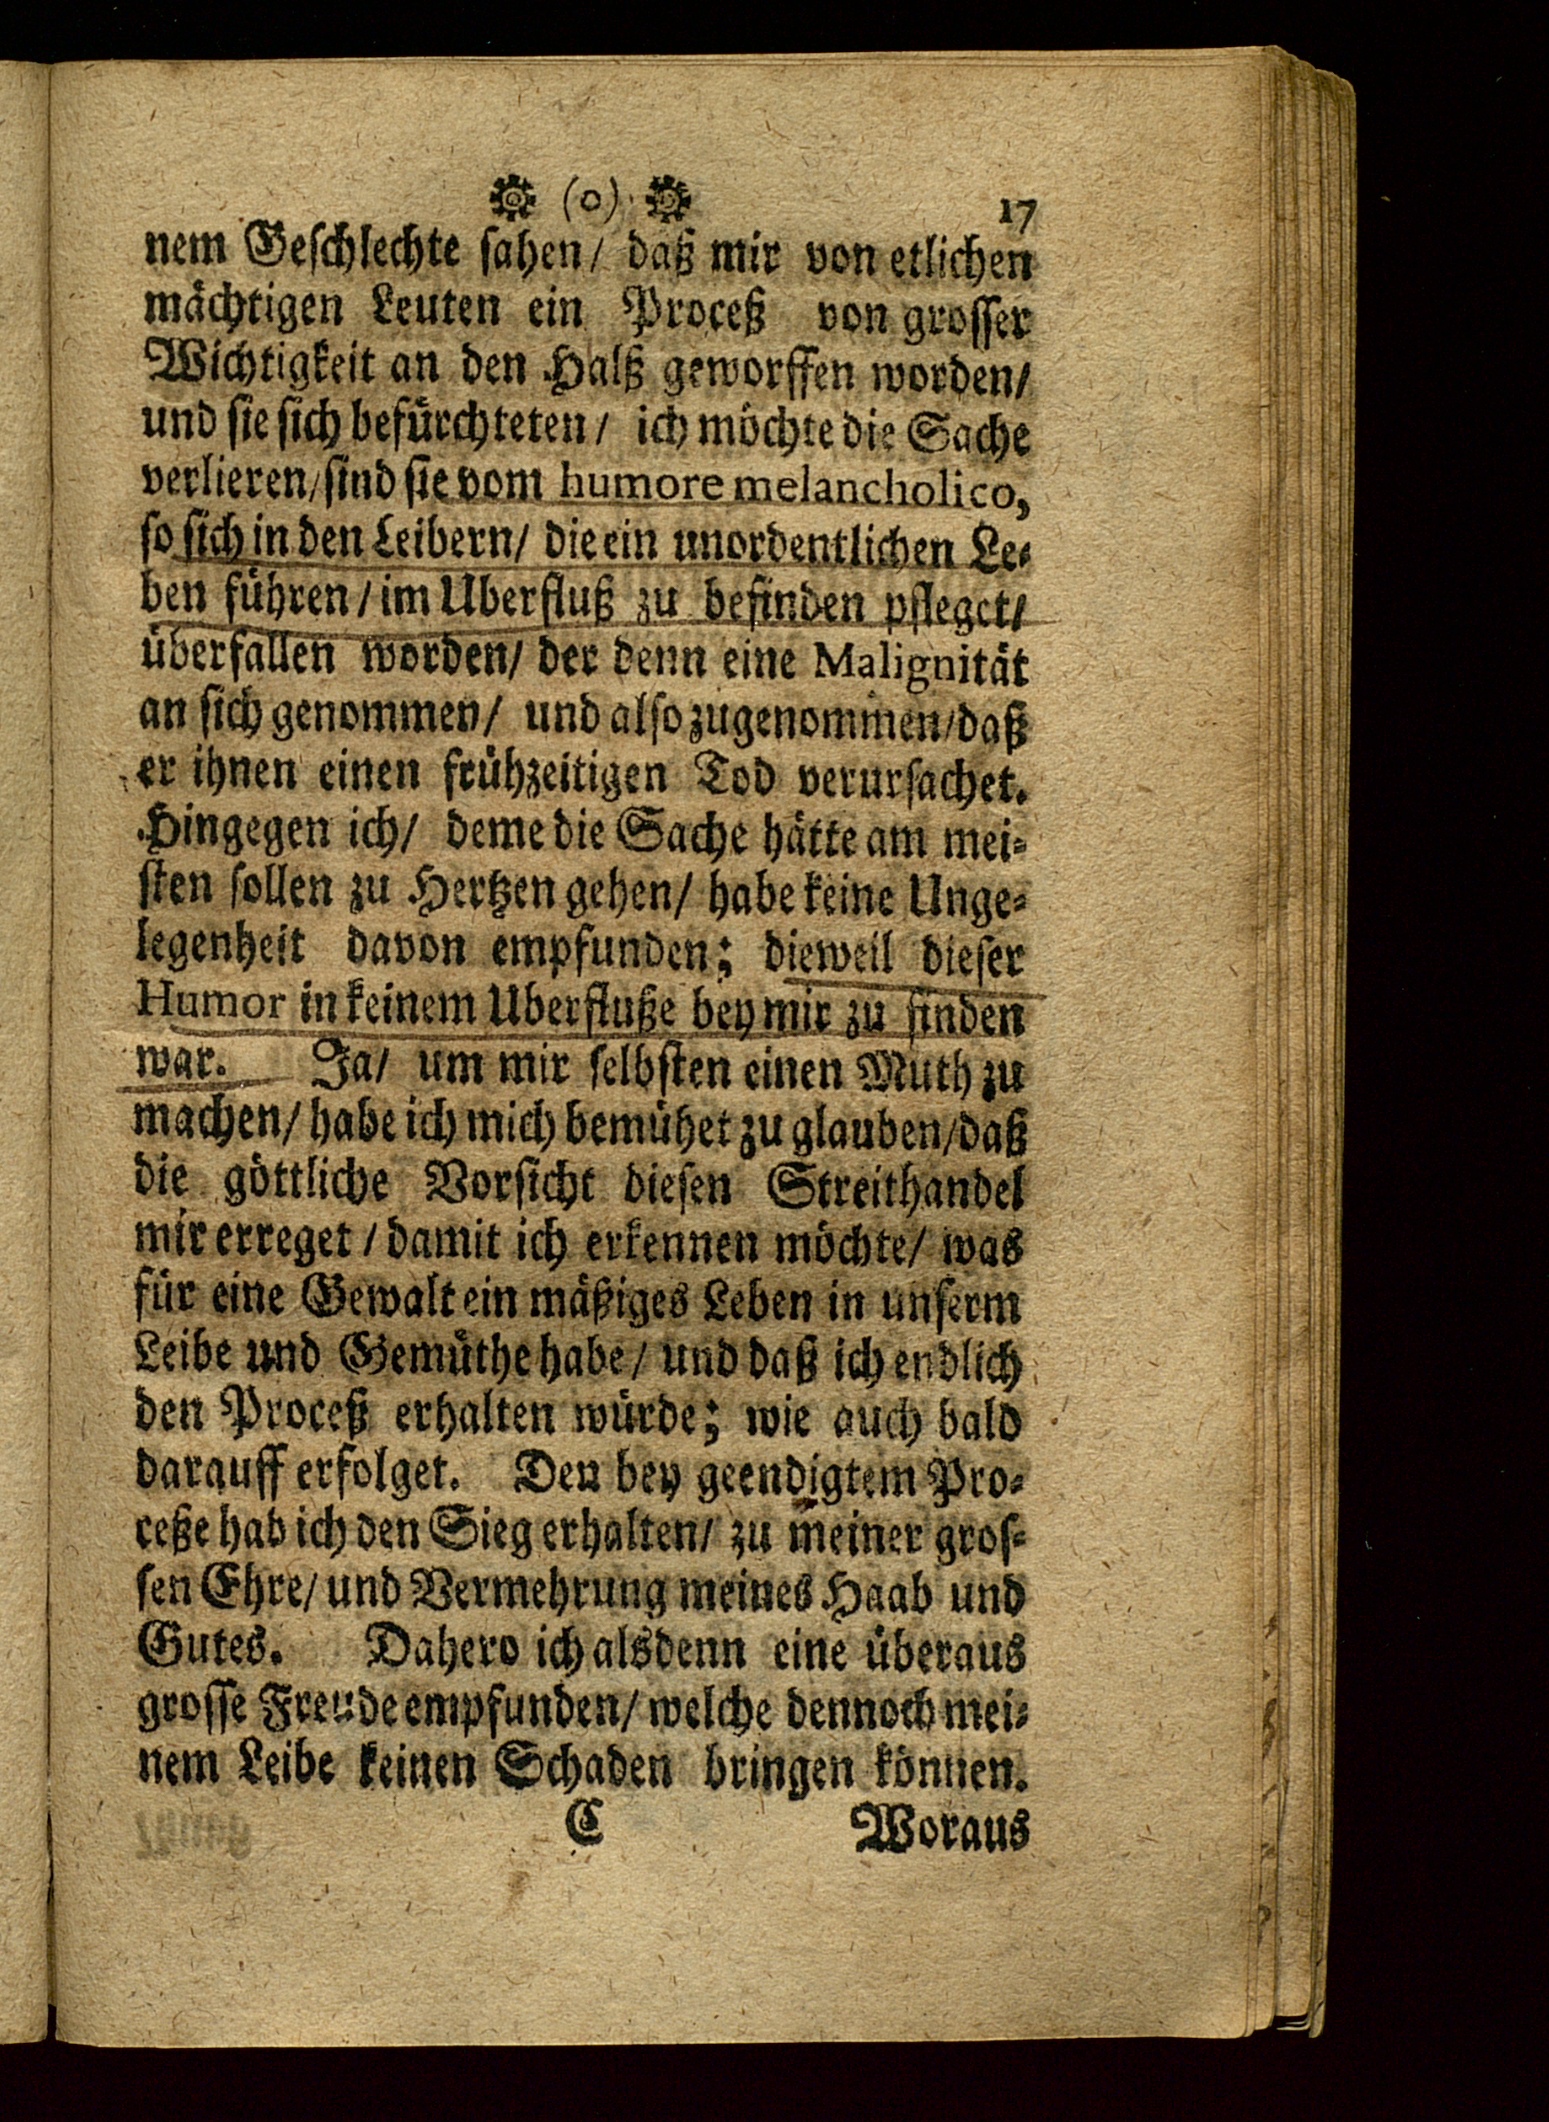 (o) 17
nem Geschlechte sahen/ daß mir von etlichen
mächtigen Leuten ein Proceß von grosser
Wichtigkeit an den Halß geworffen worden/
und sie sich befürchteten/ ich möchte die Sache
verlieren/sind sie vom humore melancholico,
so sich in den Leibern/ die ein unordentlichen Le-
ben führen/im Uberfluß zu befinden pfleget/
überfallen worden/ der denn eine Malignität
an sich genommen/ und also zugenommen/daß
er ihnen einen frühzeitigen Tod verursachet.
Hingegen ich/ deme die Sache hätte am mei-
sten sollen zu Hertzen gehen/ habe keine Unge-
legenheit davon empfunden; dieweil dieser
Humor in keinem Uberfluße bey mir zu finden
war. Ja/ um mir selbsten einen Muth zu
machen/habe ich mich bemühet zu glauben/daß
die göttliche Vorsicht diesen Streithandel
mir erreget/damit ich erkennen möchte/ was
für eine Gewalt ein mäßiges Leben in unserm
Leibe und Gemüthe habe/ und daß ich endlich
den Proceß erhalten würde; wie auch bald
darauff erfolget. Den bey geendigtem Pro-
ceße hab ich den Sieg erhalten/ zu meiner gros-
sen Ehre/und Vermehrung meines Haab und
Gutes. Dahero ich alsdenn eine überaus
grosse Freude empfunden/welche dennoch mei-
nem Leibe keinen Schaden bringen können.
C Woraus